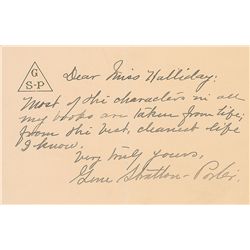 G
S-P
Dear Miss Halliday:
Most of the characters in all
my books are taken from life;
from the best, cleanest life
I know.
Very truly yours,
Gene Stratton-Porter.